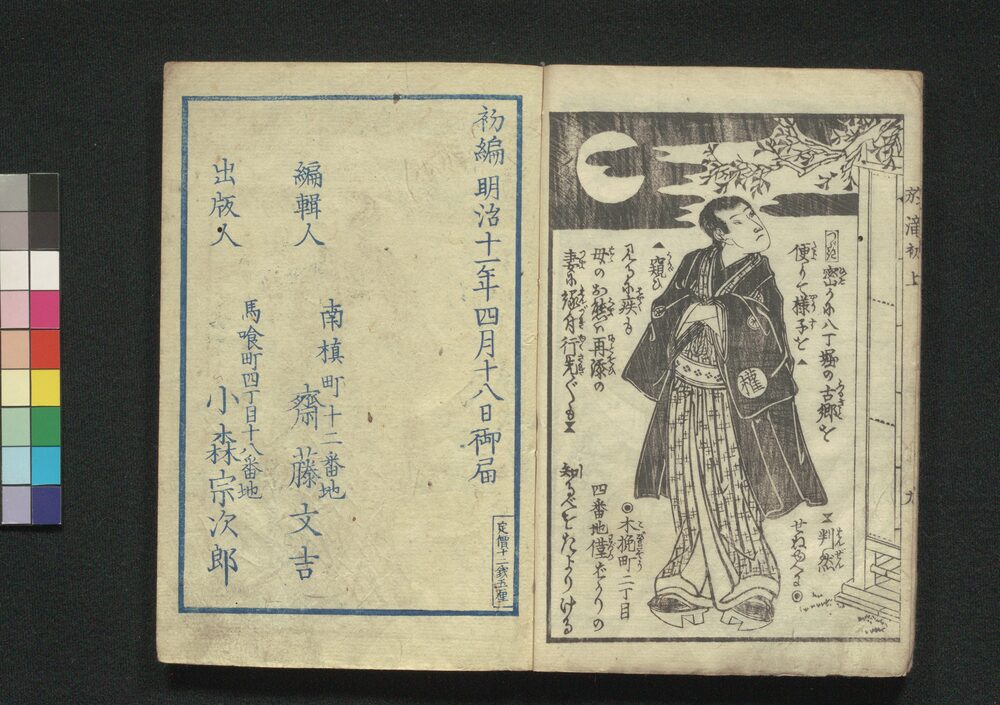 於滝初上
九
つゞき
密かに八丁堀の古郷を
便りて様子を▲
▲窺ひ
見るに疾も
母のお熊は再添の
妻に縁付行先ぐも
判然
せねども
木挽町二丁目
四番地僅ばかりの
知るべをたよりける
初編明治十一年四月十八日御届
定價十二銭五厘
編輯人
南槙町十二番地
齋藤文吉
出版人
馬喰町四丁目十八番地
小森宗次郎